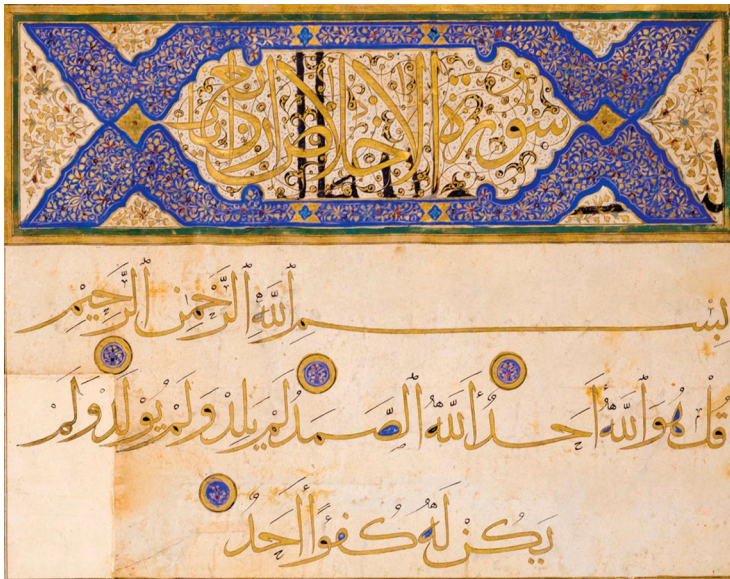 سورة الاخلاص اربع ايات
بِسْمِ ٱللَّهِ ٱلرَّحْمَٰنِ ٱلرَّحِيمِ
قُلْ هُوَ ٱللَّهُ أَحَدٌ ٱللَّهُ ٱلصَّمَدُ لَمْ يَلِدْ وَلَمْ يُولَدْ وَلَمْ
يَكُنْ لَهُ كُفُؤًا أَحَدٌ